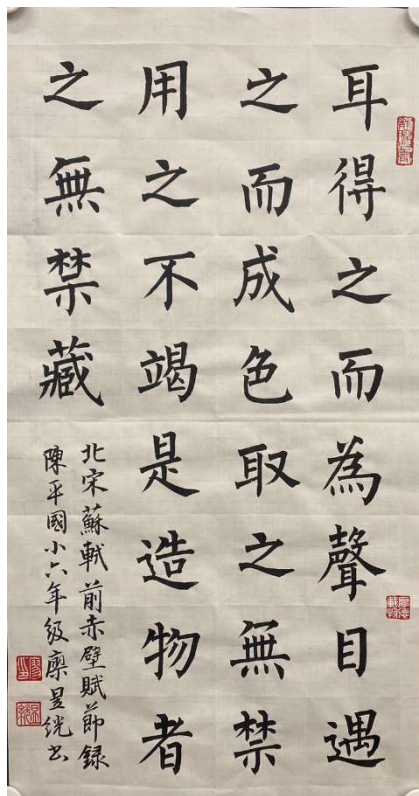 耳得之而為聲目遇
之而成色取之無禁
用之不竭是造物者
之無禁藏
北宋蘇軾前赤壁賦節録
陳平國小六年級廖昱絖书